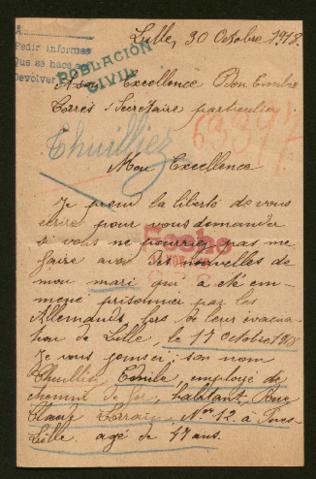 A
Lille, 30 Octobre 1918.
Pedir informes
Que se hace en
Devolver
POBLACIÓN
CIVIL
A son Excellence Don Emilio
Torrès Secrétaire particulier
63977
Thuilliez
Mon Excellence
Je prend la liberté de vous
écrire pour vous demander
si vous ne pourriez pas me
faire avoir des nouvelles de
mon mari qui a été em-
mené prisonnier par les
Allemands lors de leur évacua-
tion de Lille, le 17 octobre 1918
Je vous joins ici son nom
Thuilliez Emile, employé de
chemin de fer, habitant Rue
Claude Lorrain N° 12. à Fives-
Lille agé de 47 ans.